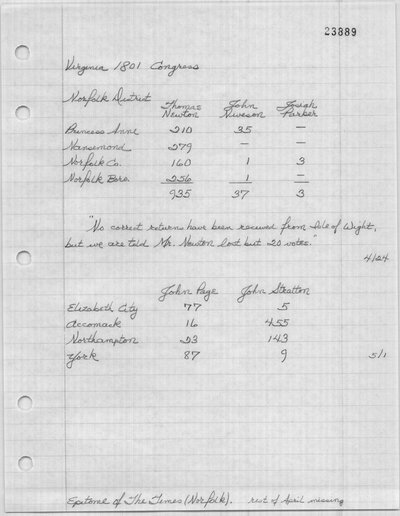 23889
Virginia 1801 Congress
Norfolk District
Thomas Newton John Niveson Josiah Parker
Princess Anne 210 35 —
Nansemond 279 — —
Norfolk Co. 160 1 3
Norfolk Boro. 256 1 —
935 37 3
"No correct return have been received from Isle of Wight,
but we are told Mr. Newton lost but 20 votes."
4/24
John Page John Stratton
Elizabeth City 77 5
Accomack 16 455
Northampton 23 143
York 87 9 5/1
Epitome of The Times (Norfolk). rest of April missing